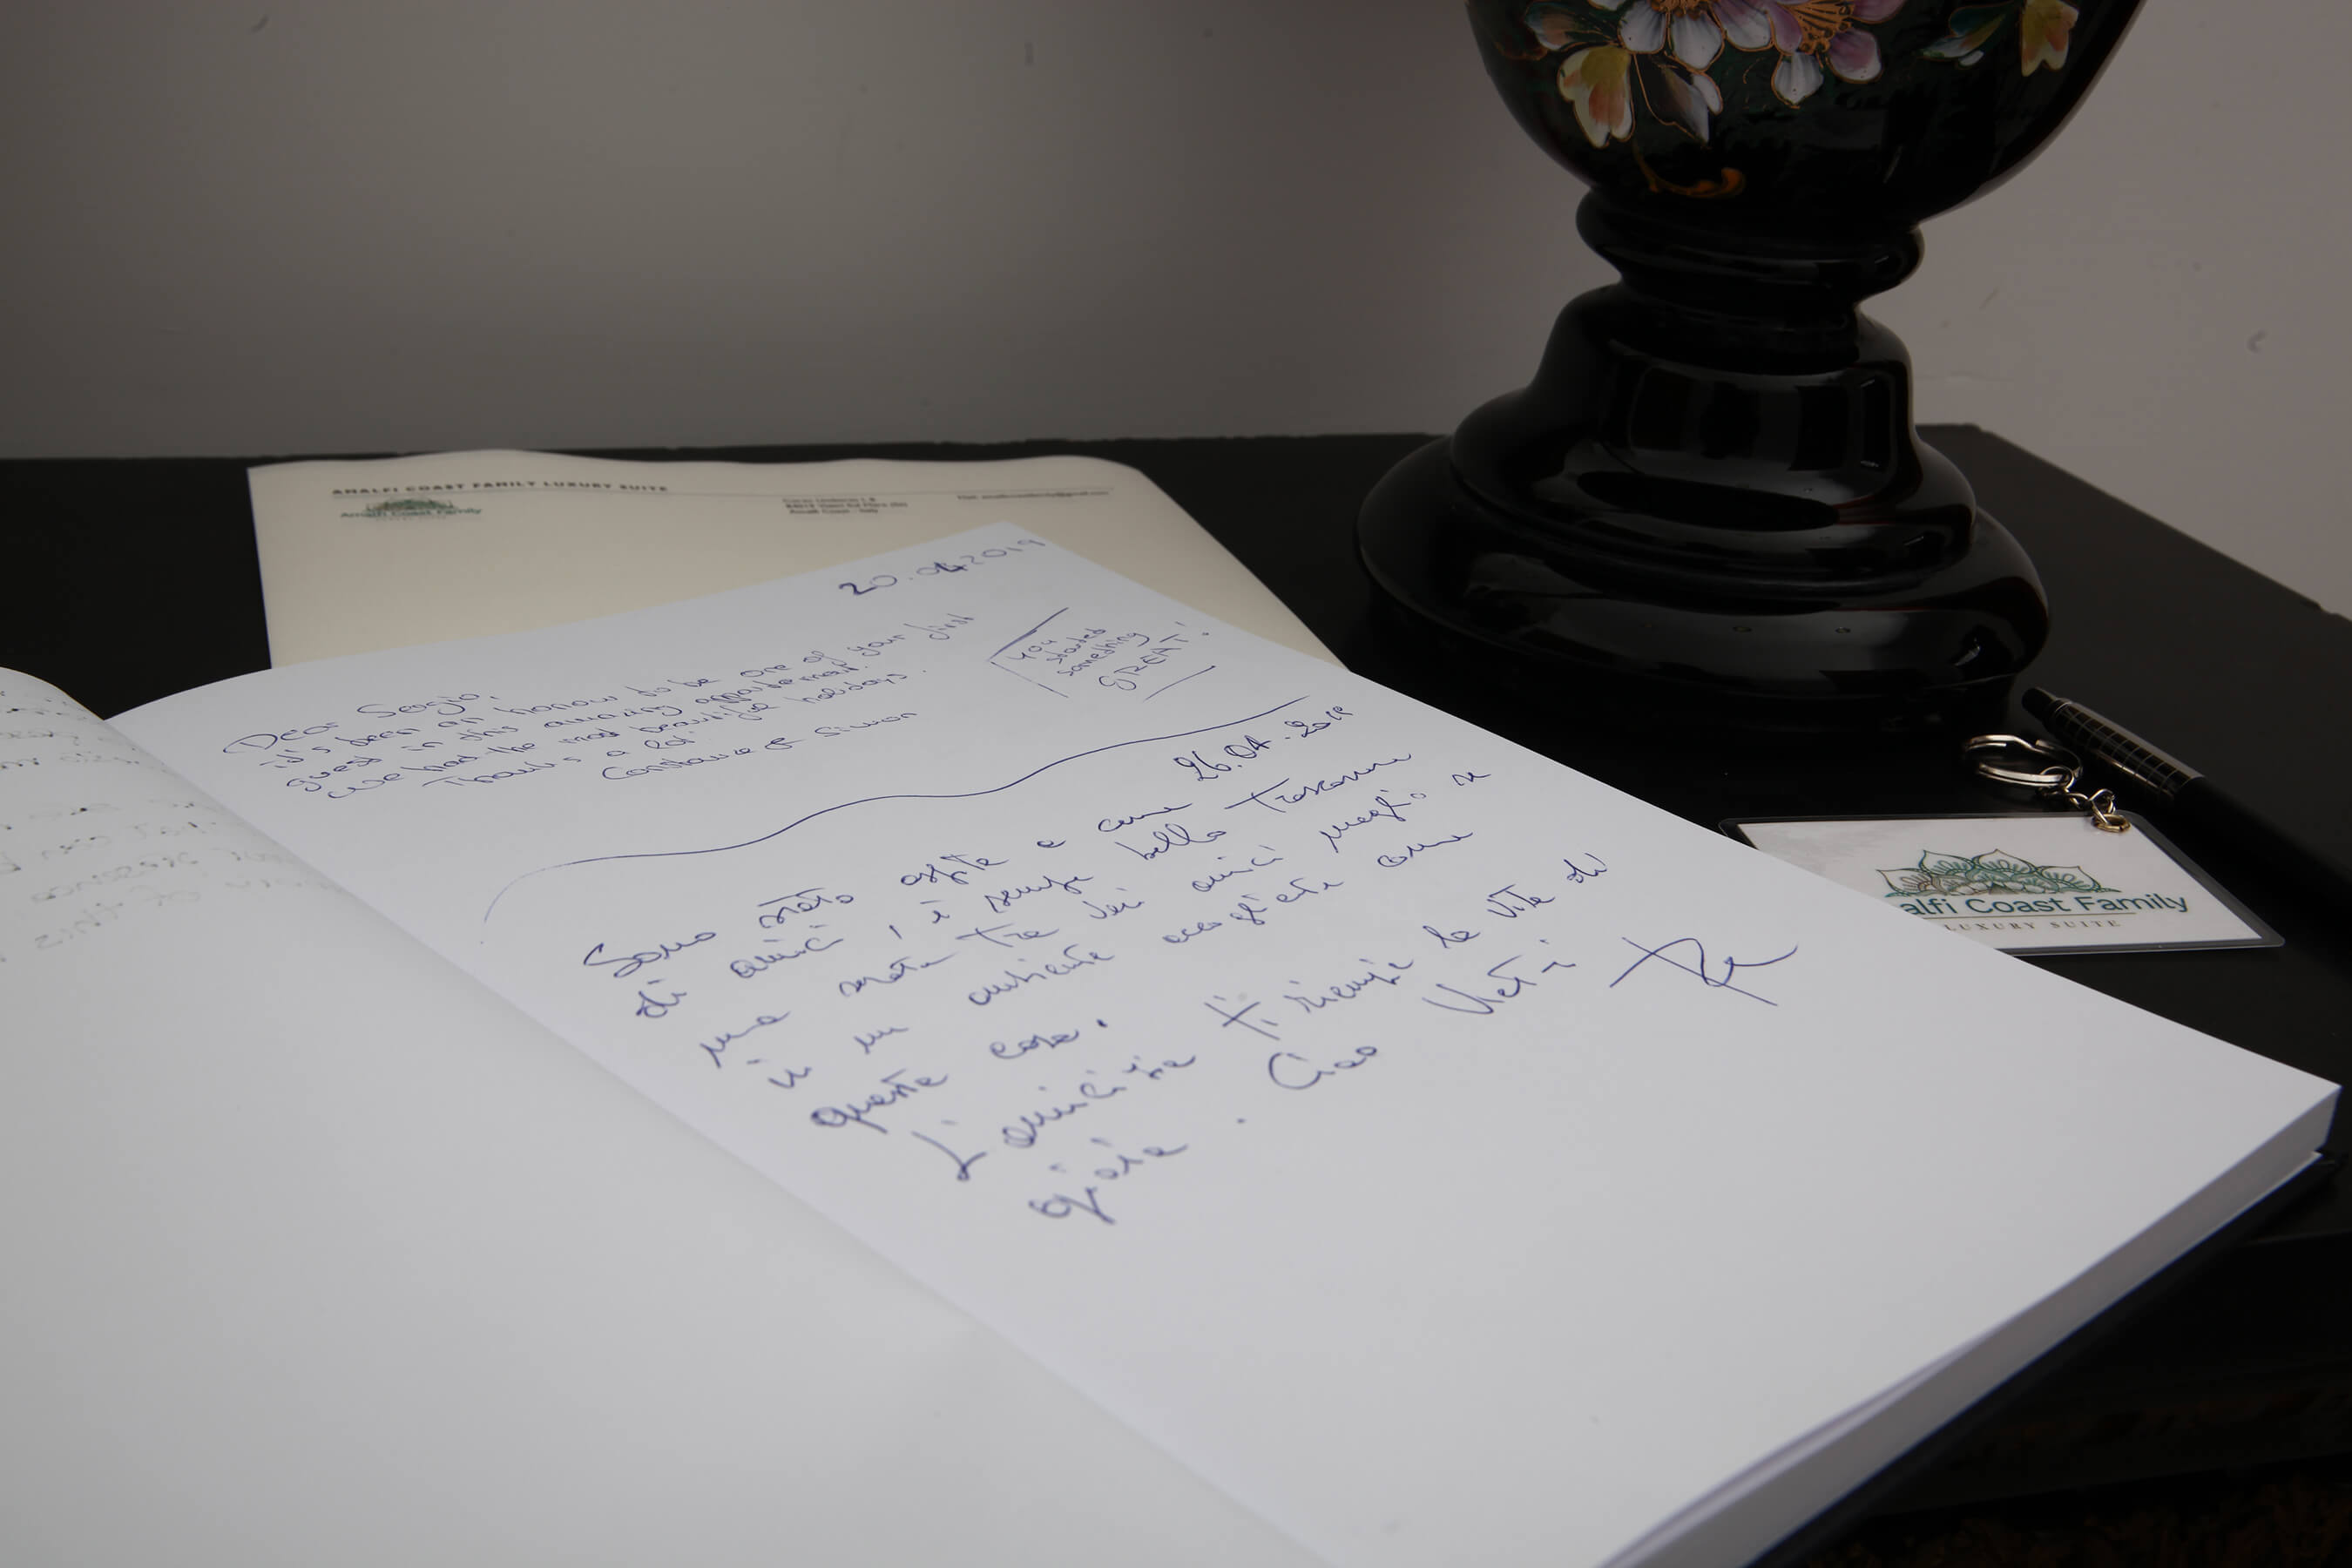 AMALFI COAST FAMILY LUXURY SUITE
Amalfi Coast Family
Amalfi Coast - Italy
20.04.2019
Dear Sergio,
it's been an honour to be one of your first
guest in this amazing appartement.
We had the most beautiful holidays.
Thanks a lot
Constance & Simon
You
started
something
GREAT!
26.04.2019
Sono stato ospite a cena
di amici, è sempre bello trascorrere
una serata tra dei amici meglio se
in un ambiente accogliente come
questa casa.
L'amicizia ti riempie la vita di
gioia. Ciao
alfi Coast Family
LUXURY SUITE